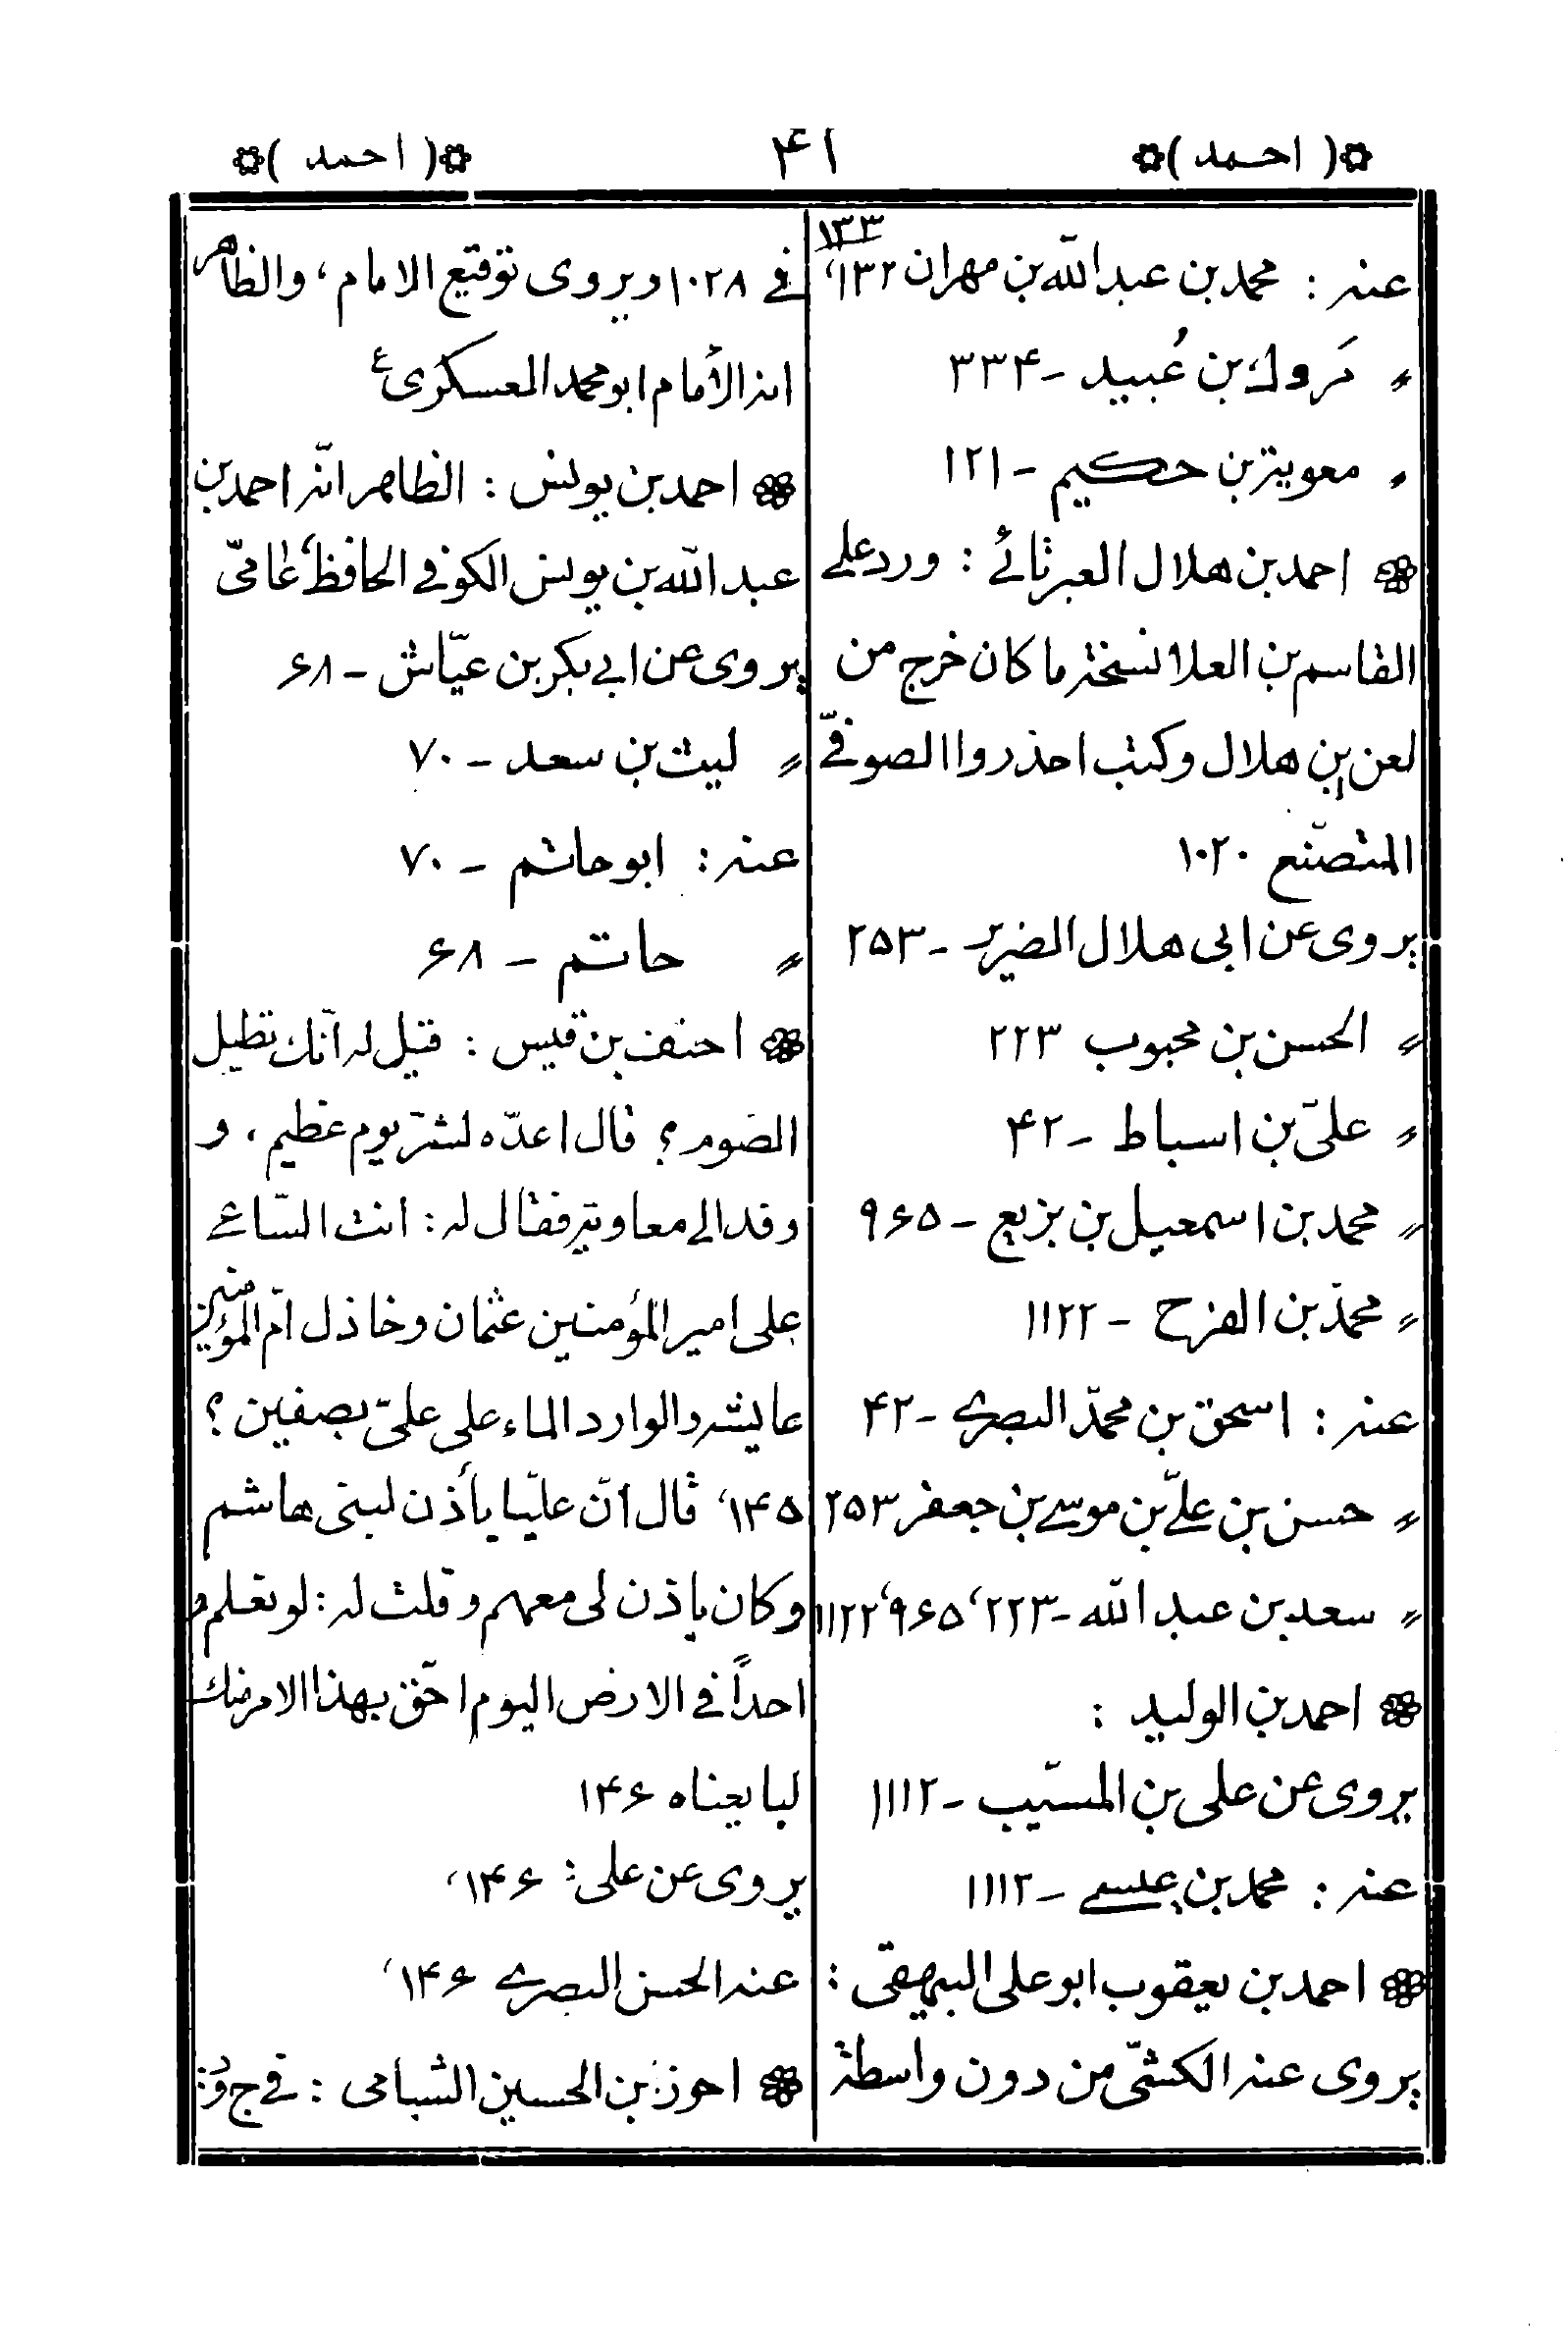 ❁( احمد )❁
۴۱
❁( احمد )❁
عنه : محمد بن عبد الله بن مهران ۱۳۲، ۱۳۳
〃 مَروك بن عُبيد - ۳۳۴
〃 معوية بن حكيم - ۱۲۱
❁ احمد بن هلال العبرتائي : ورد على
القاسم بن العلا نسخة ما كان خرج من
لعن ابن هلال وكتب احذروا الصوفيّ
المتصنّع ۱۰۲۰
يروى عن ابى هلال الضرير - ۲۵۳
〃 الحسن بن محبوب ۲۲۳
〃 علىّ بن اسباط - ۴۲
〃 محمد بن اسمعيل بن بزيع - ۹۶۵
〃 محمّد بن الفرج - ۱۱۲۲
عنه : اسحق بن محمّد البصرى - ۴۲
〃 حسن بن علىّ بن موسى بن جعفر ۲۵۳
〃 سعد بن عبد الله - ۲۲۳، ۹۶۵، ۱۱۲۲
❁ احمد بن الوليد :
يروى عن على بن المسيّب - ۱۱۱۲
عنه : محمد بن عيسى - ۱۱۱۲
❁ احمد بن يعقوب ابو على البيهقى :
يروى عنه الكشّى من دون واسطة
فى ۱۰۲۸ ويروى توقيع الامام، والظاهر
انه الأمام ابو محمد العسكرى ع
❁ احمد بن يونس : الظاهر انّه احمد بن
عبد الله بن يونس الكوفى الحافظ، عامىّ
يروى عن ابى بكر بن عيّاش - ۶۸
〃 ليث بن سعد - ۷۰
عنه : ابو حاتم - ۷۰
〃 حاتم - ۶۸
❁ احنف بن قيس : قيل له انّك تطيل
الصوم؟ قال اعدّه لشرّ يوم عظيم، و
وفد الى معاوية فقال له : انت السّاعى
على امير المؤمنين عثمان وخاذل امّ المؤمنين
عايشه والوارد الماء على علىّ بصفين؟
۱۴۵، قال انّ عليّا يأذن لبنى هاشم
وكان يأذن لى معهم وقلت له : لو نعلم
احداً فى الارض اليوم احقّ بهذا الامر منك
لبايعناه ۱۴۶
يروى عن على : ۱۴۶،
عنه الحسن البصرى ۱۴۶،
❁ احوز بن الحسين الشبامى : فى ج